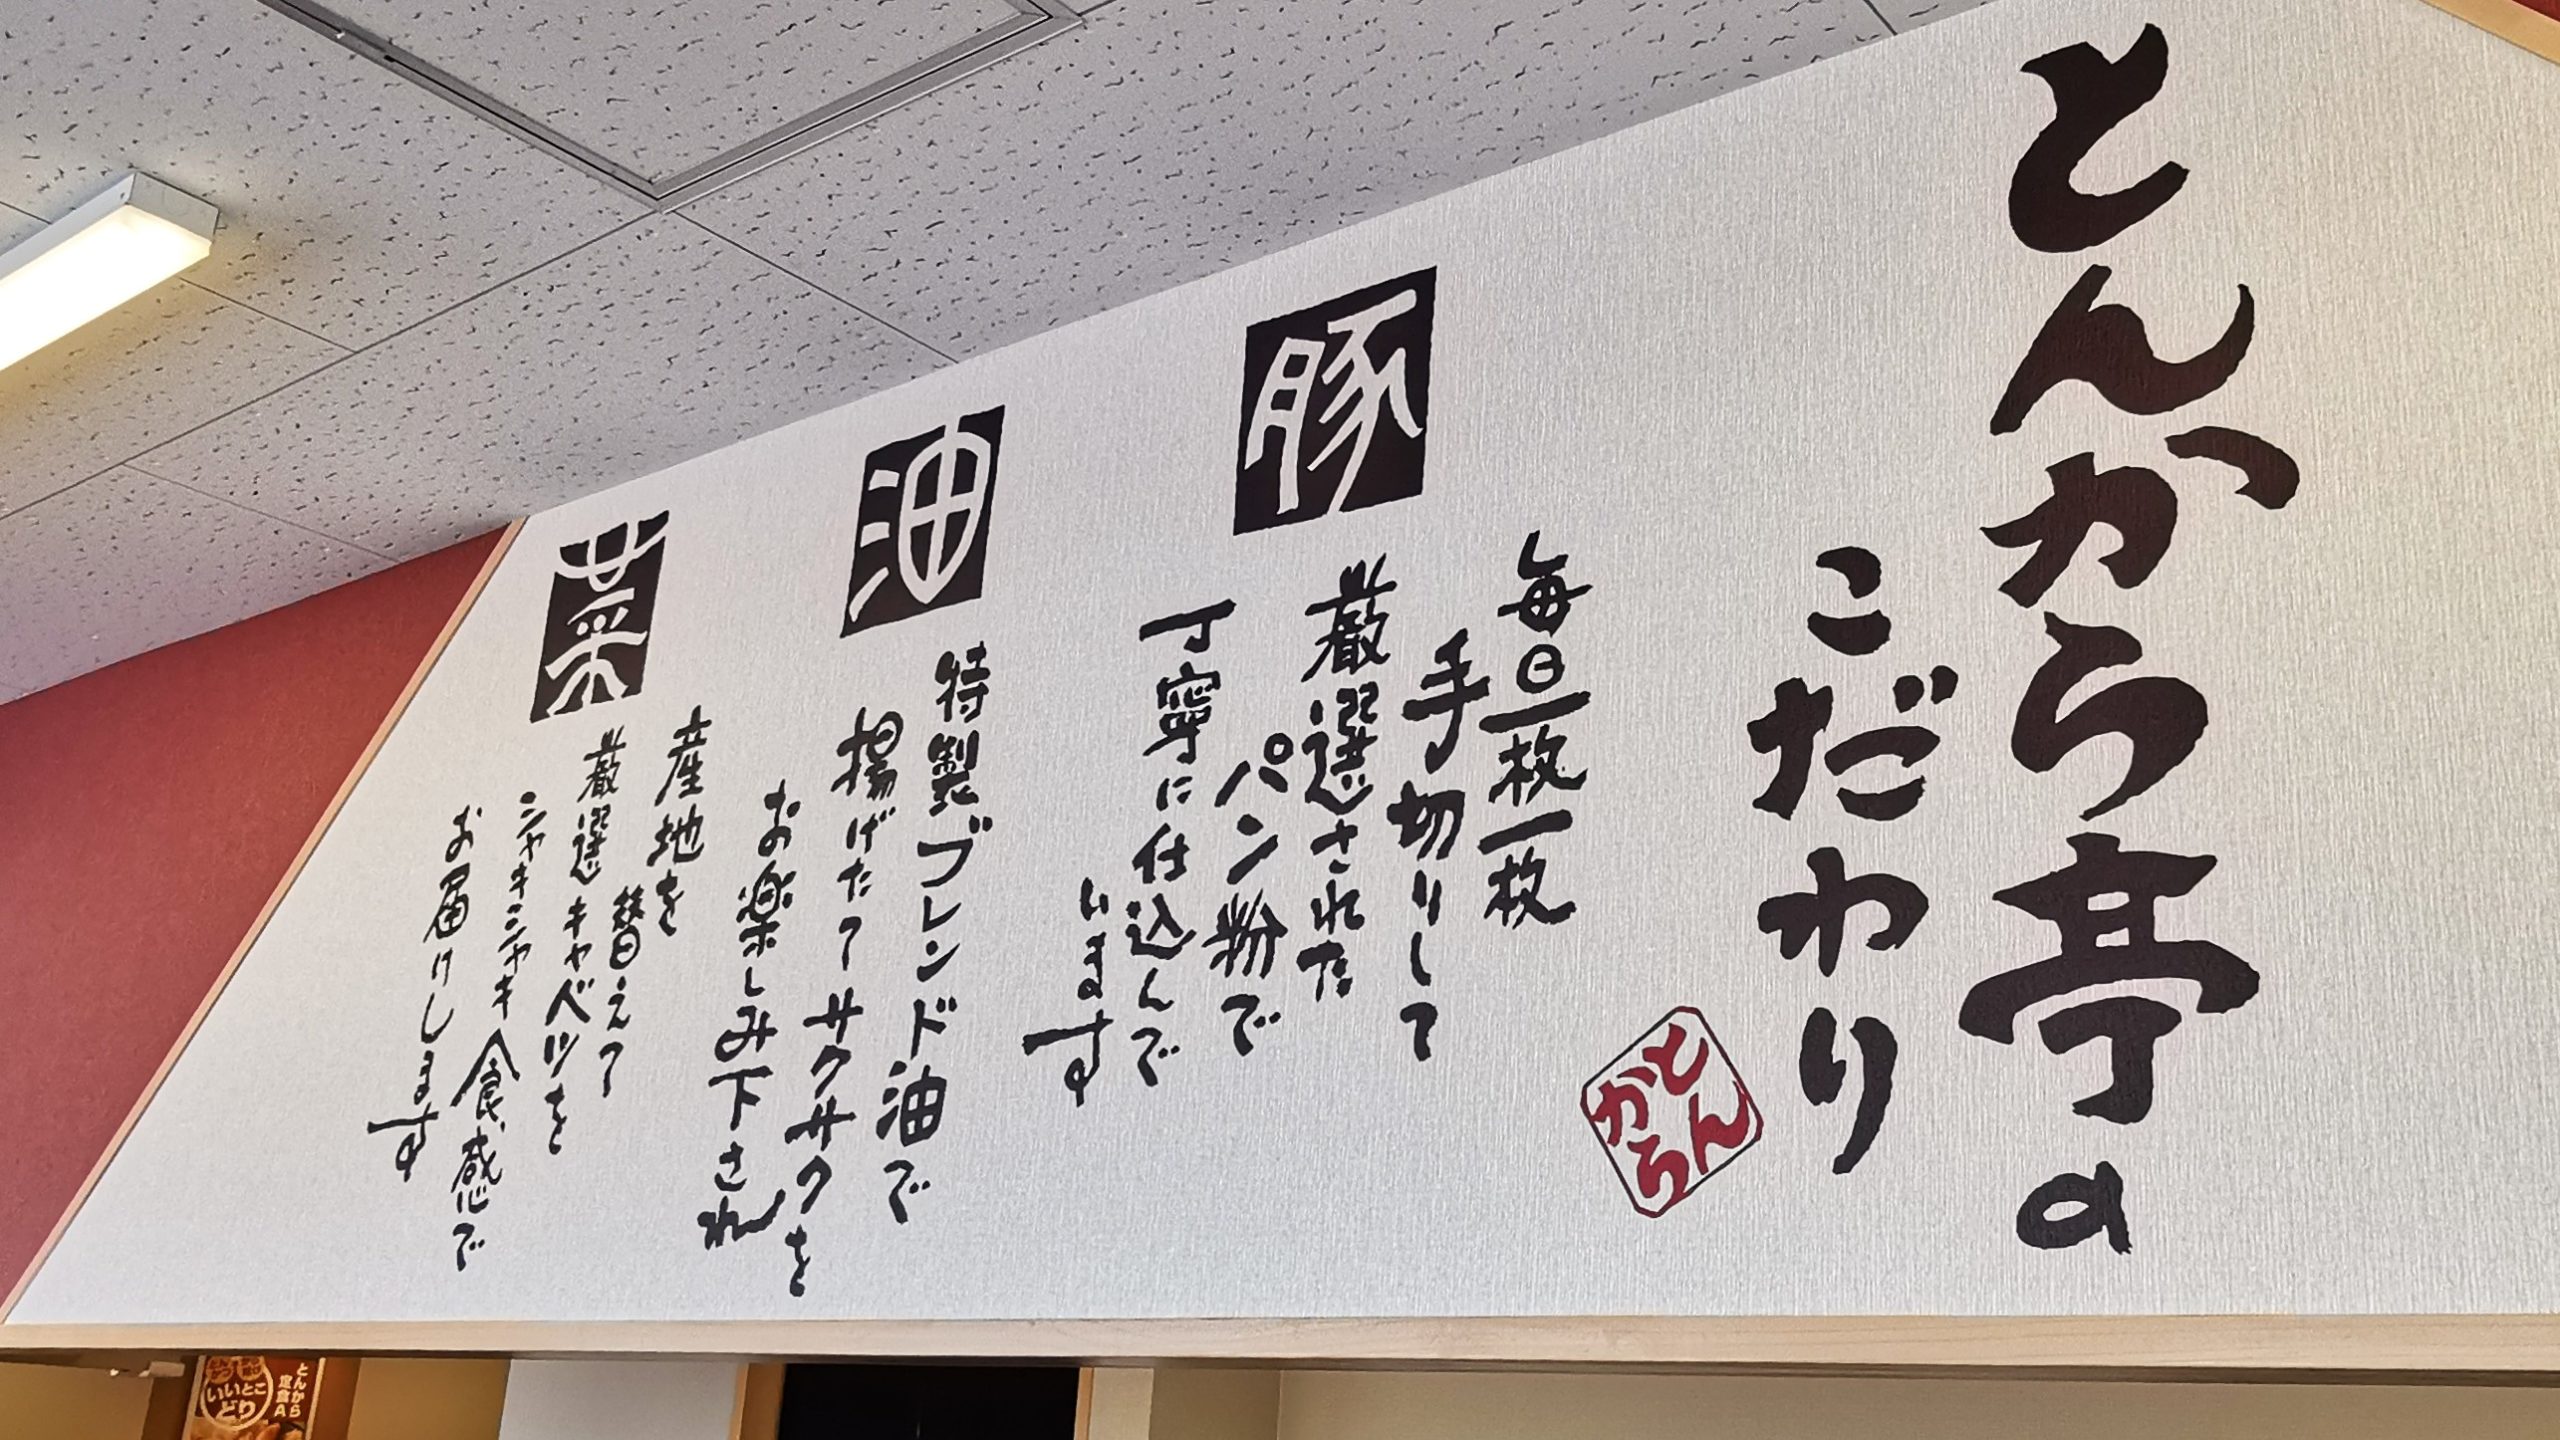 とんから亭の
こだわり
とん
から
豚
毎日一枚一枚
手切りして
厳選された
パン粉で
丁寧に仕込んで
います
油
特製ブレンド油で
揚げたてサクサクを
お楽しみ下され
菜
産地を
替えて
厳選キャベツを
シャキシャキ食感で
お届けします
いいとこ
どり
とんから
定食A